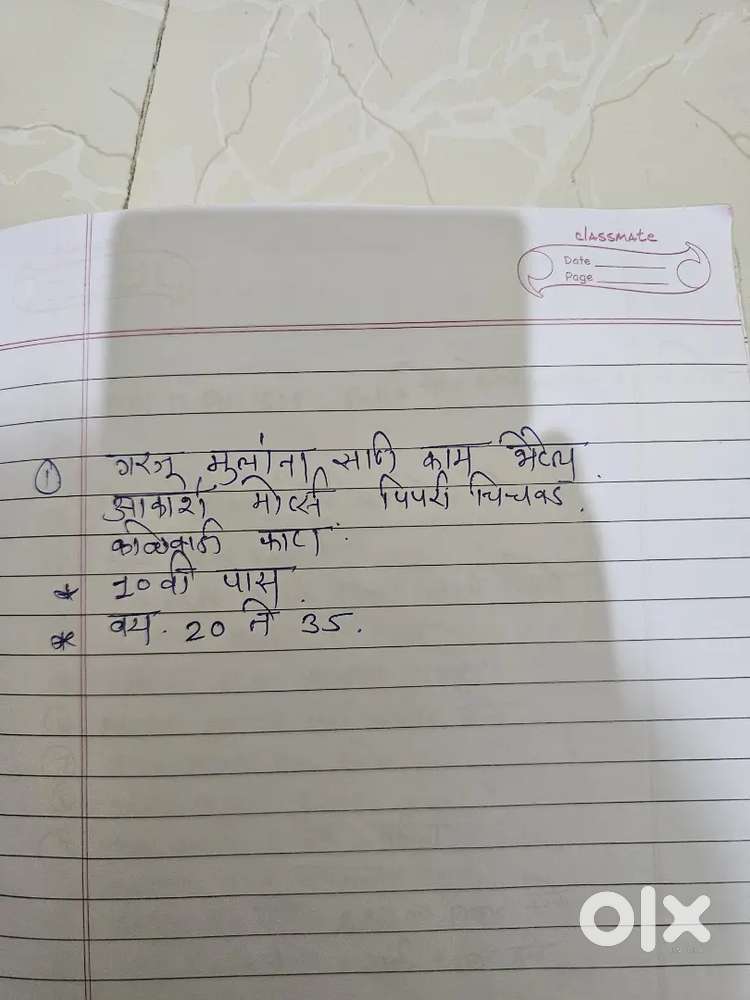 classmate
Date
Page
① गरजू मुलांना साठी काम भेटेल.
आकाश मोटर्स पिंपरी चिंचवड.
काळेवाडी फाटा.
* 10वी पास.
* वय. 20 ते 35.
olx